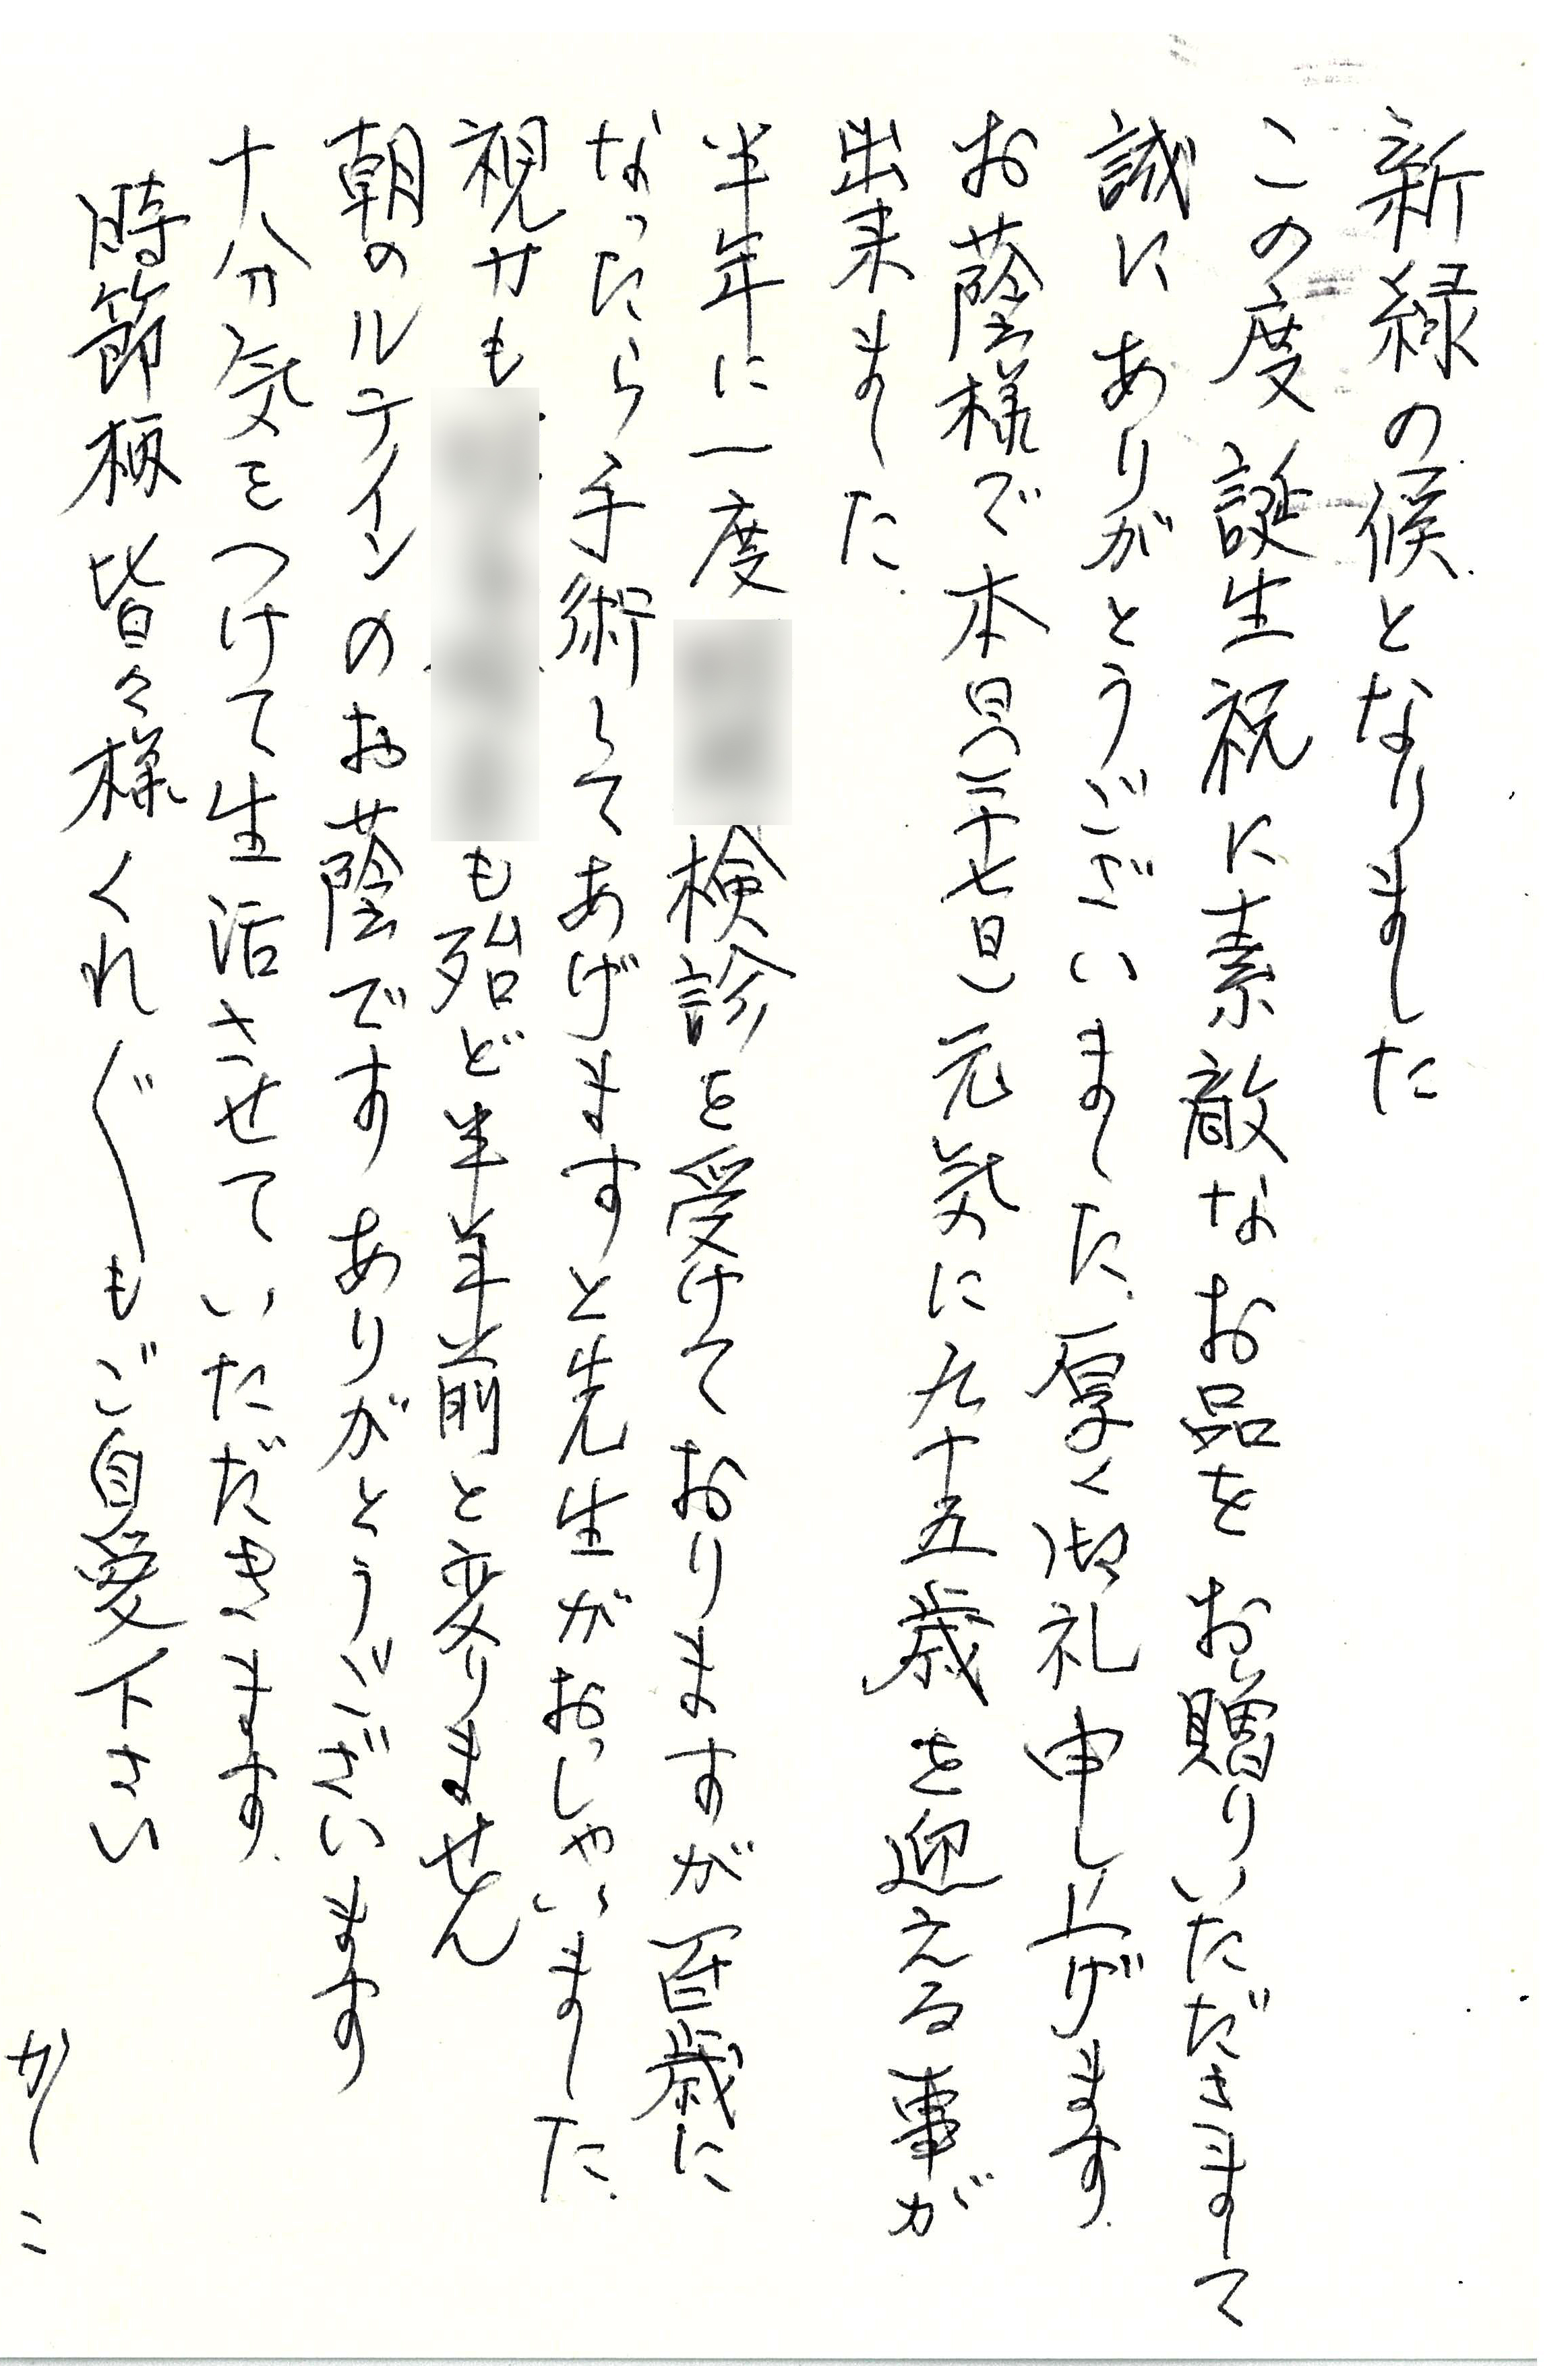 新緑の候となりました
この度誕生祝に素敵なお品をお贈りいただきまして
誠にありがとうございました.厚く御礼申し上げます.
お蔭様で本日(二十七日)元気に九十五歳を迎える事が
出来ました.
半年に一度検診を受けておりますが百歳に
なったら手術してあげますと先生がおっしゃいました.
視力も も殆ど半年前と変りません
朝のルテインのお蔭です ありがとうございます
十分気をつけて生活させていただきます.
時節柄皆々様くれ〴〵もご自愛下さい
かしこ